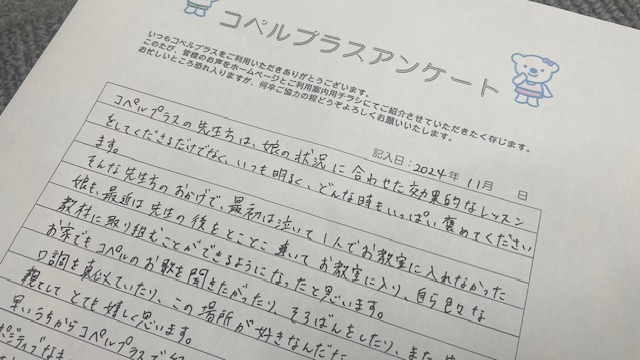 コペルプラスアンケート
いつもコペルプラスをご利用いただきありがとうございます。
このたび、皆様のお声をホームページとご利用案内用チラシにてご紹介させていただきたく存じます。
お忙しいところ恐れ入りますが、何卒ご協力の程どうぞよろしくお願いいたします。
記入日：2024年 11月 日
コペルプラスの先生方は、娘の状況に合わせた効果的なレッスン
をしてくださるだけでなく、いつも明るく、どんな時もいっぱい褒めてください
ます。
そんな先生方のおかげで、最初は泣いて1人でお教室に入れなかった
娘も、最近は先生の後をとことこ着いてお教室に入り、自ら色々な
教材に取り組むことができるようになったと思います。
お家でもコペルのお歌を聞きたがったり、そろばんをしたり、また
口調を真似ていたり、この場所が好きなんだな
親としてとても嬉しく思います。
早いうちからコペルプラスで
ポジティブな